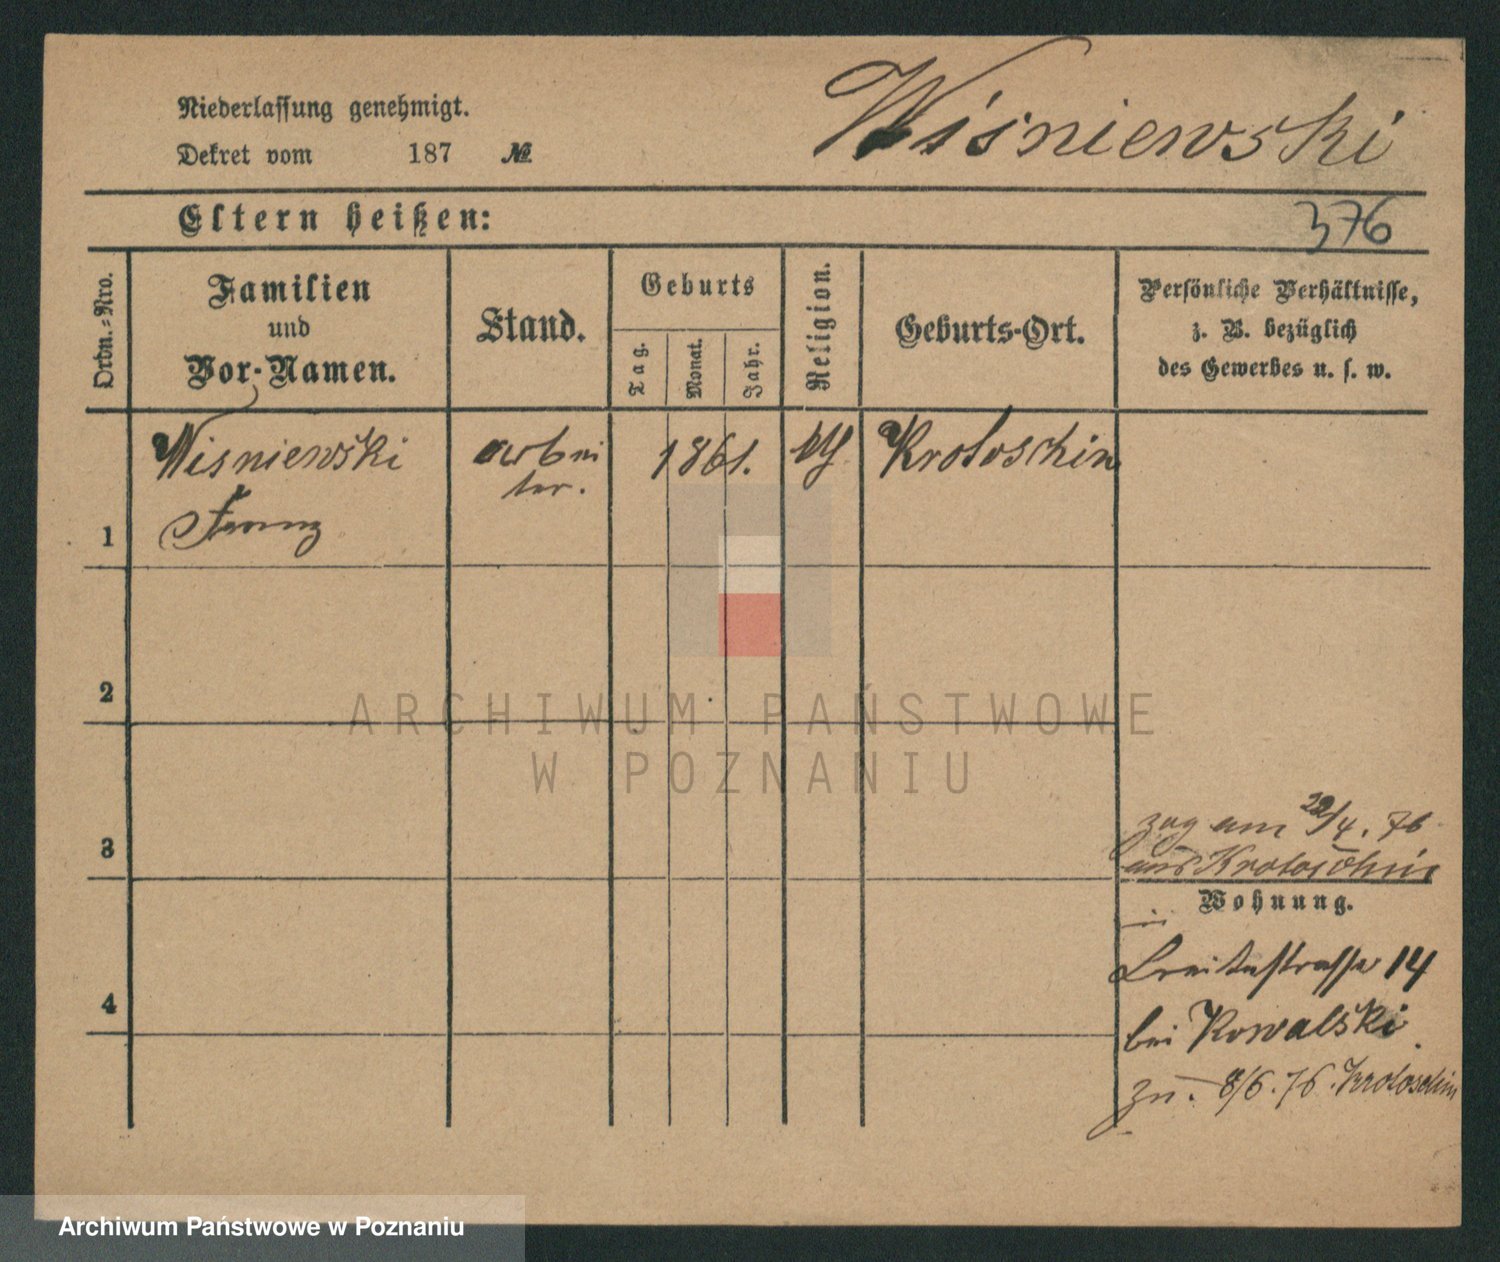 Niederlassung genehmigt.
Dekret vom 187 №
Wiśniewski
Eltern heißen:
376
Ordn.-Nro.
Familien
und
Vor-Namen.
Stand.
Geburts
Tag.
Monat.
Jahr.
Religion.
Geburts-Ort.
Persönliche Verhältnisse,
z. B. bezüglich
des Gewerbes u. s. w.
Wisniewski
Franz
arbei
ter.
1861.
Krotoschin
1
2
ARCHIWUM PAŃSTWOWE
W POZNANIU
3
zog am 22/4. 76
aus Krotoschin
Wohnung.
in
Breitestrasse 14
4
bei Kowalski
8/6. 76. Krotoschin
Archiwum Państwowe w Poznaniu